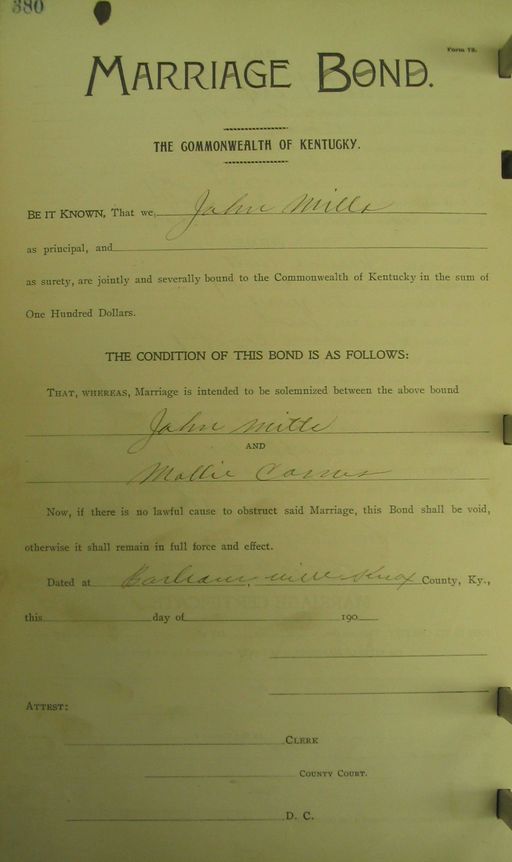 380
Form 78.
MARRIAGE BOND.
THE COMMONWEALTH OF KENTUCKY.
BE IT KNOWN, That we, John Mills
as principal, and
as surety, are jointly and severally bound to the Commonwealth of Kentucky in the sum of
One Hundred Dollars.
THE CONDITION OF THIS BOND IS AS FOLLOWS:
THAT, WHEREAS, Marriage is intended to be solemnized between the above bound
John Mills
AND
Mollie
Now, if there is no lawful cause to obstruct said Marriage, this Bond shall be void,
otherwise it shall remain in full force and effect.
Dated at Barbourville Knox County, Ky.,
this day of 190
ATTEST:
CLERK
COUNTY COURT.
D. C.